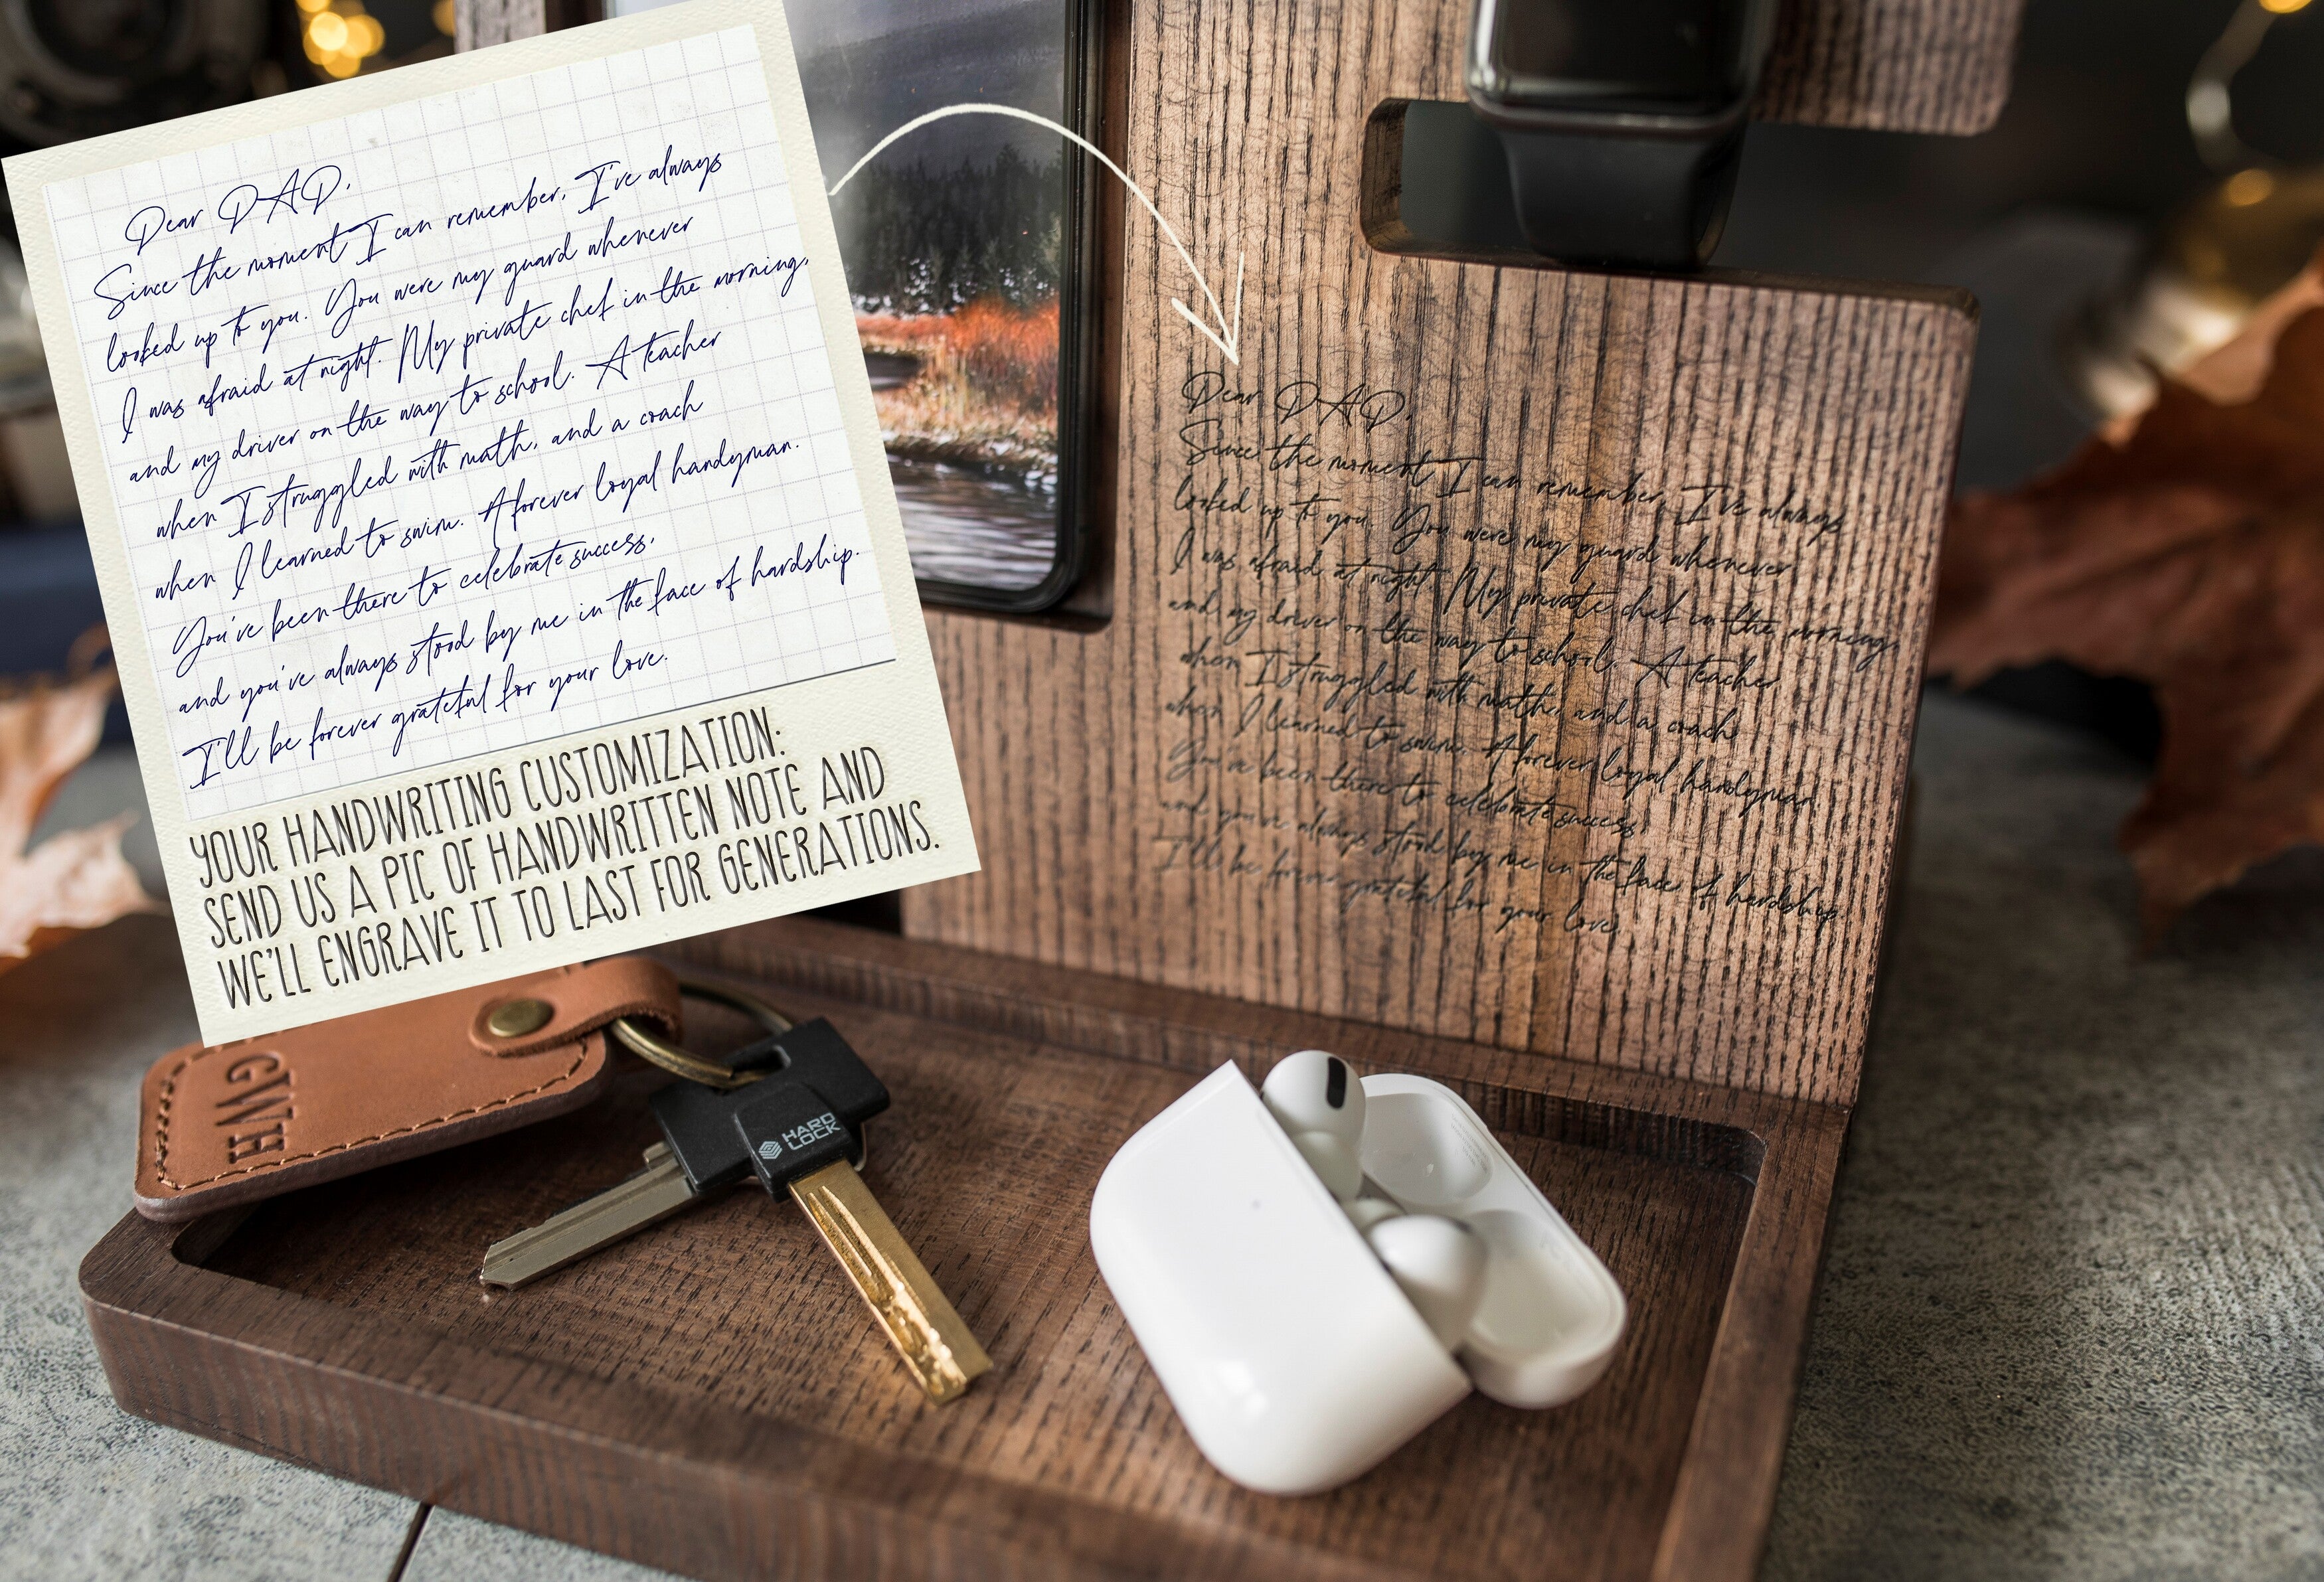 Dear DAD,
Since the moment I can remember, I've always
looked up to you. You were my guard whenever
I was afraid at night. My private chef in the morning,
and my driver on the way to school. A teacher
when I struggled with math, and a coach
when I learned to swim. A forever loyal handyman.
You've been there to celebrate success,
and you've always stood by me in the face of hardship.
I'll be forever grateful for your love.
YOUR HANDWRITING CUSTOMIZATION:
SEND US A PIC OF HANDWRITTEN NOTE AND
WE'LL ENGRAVE IT TO LAST FOR GENERATIONS.
Dear DAD,
Since the moment I can remember, I've always
looked up to you. You were my guard whenever
I was afraid at night. My private chef in the morning,
and my driver on the way to school. A teacher
when I struggled with math, and a coach
when I learned to swim. A forever loyal handyman.
You've been there to celebrate success,
and you've always stood by me in the face of hardship.
I'll be forever grateful for your love.
GWH
HARD
LOCK